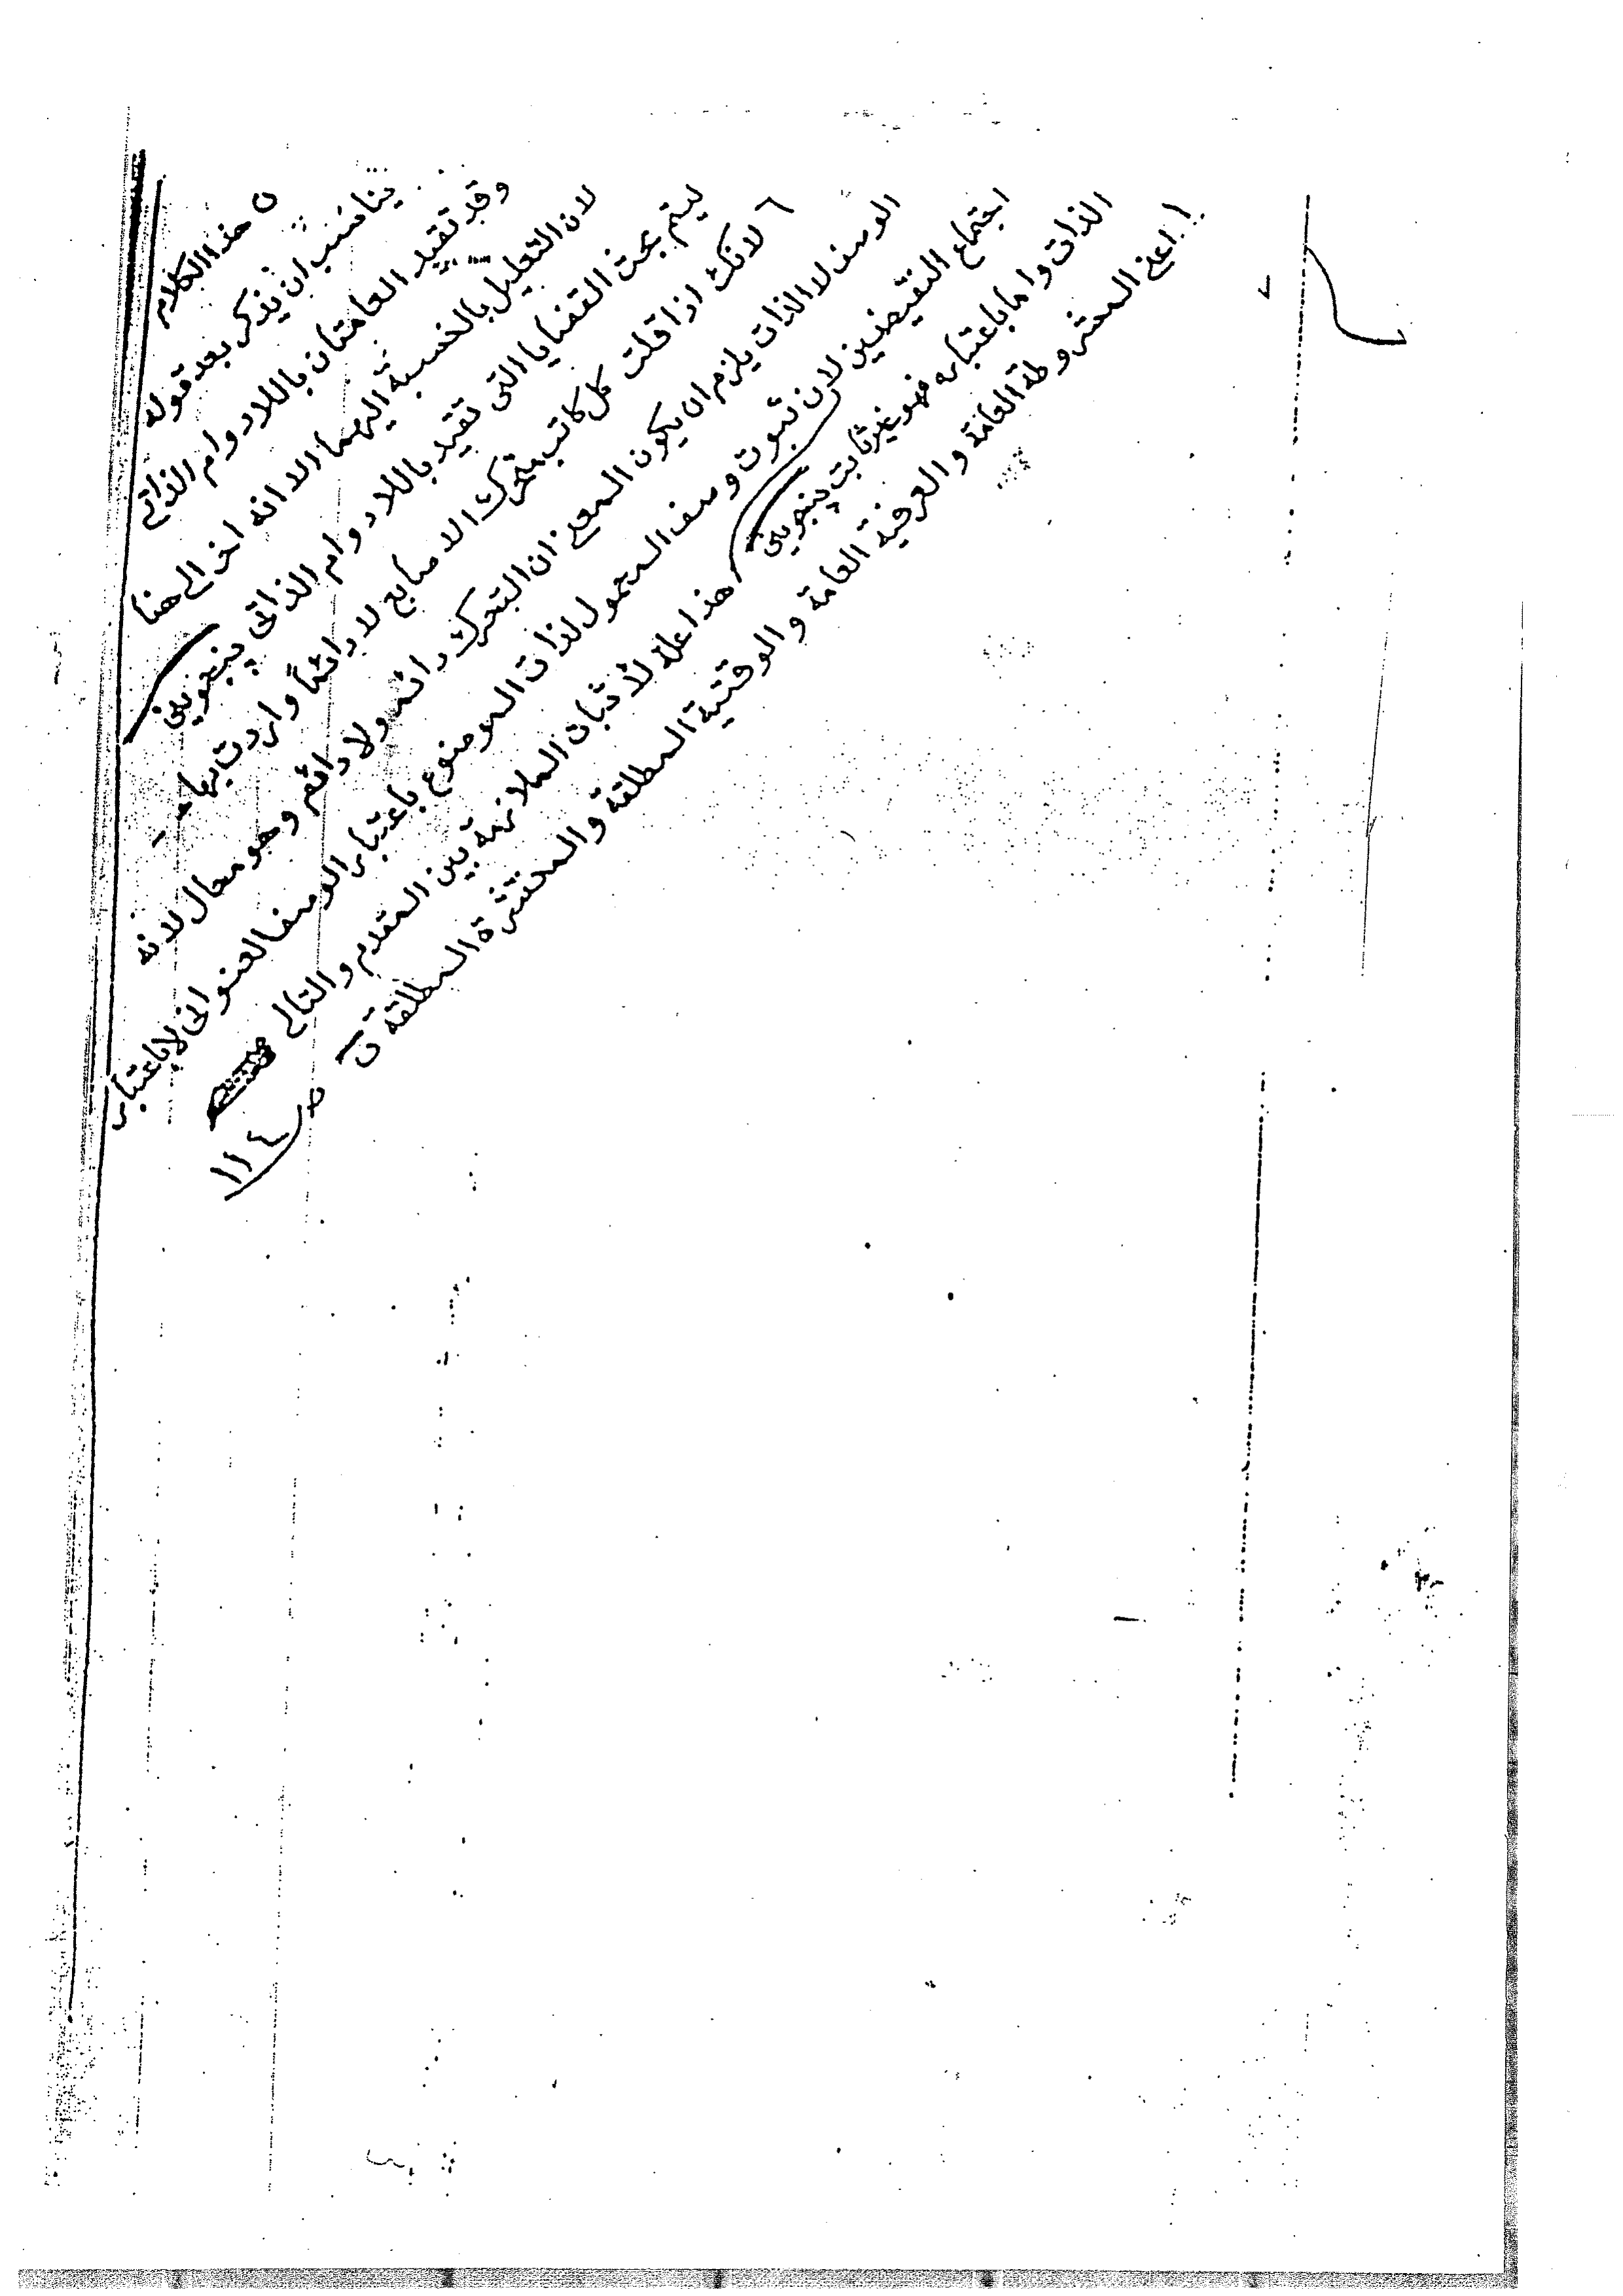 ٥ هذا الكلام
يناسب ان يذكر بعد قوله
وقد تقيد العامتان باللادوام الذاتي
لان التعليل بالنسبة اليهما الا انه اخر الى هنا
ليتم بحث القضايا التى تقيد باللادوام الذاتى پنجوينى
٦ لانك اذا قلت كل كاتب متحرك الاصابع لا دائمًا واردت بها
الوصف لا الذات يلزم ان يكون المعنى ان التحرك دائم ولا دائم وهو محال لانه
اجتماع النقيضين لان ثبوت وصف المحمول لذات الموضوع باعتبار الوصف العنوانى لا باعتبار
الذات واما باعتباره فهو غير ثابت پنجوينى هذا علة لأثبات الملازمة بين المقدم والتالى
!! اعنى المشروطة العامة و العرفية العامة و الوقتية المطلقة و المنتشرة المطلقة ن
ص ١١٤